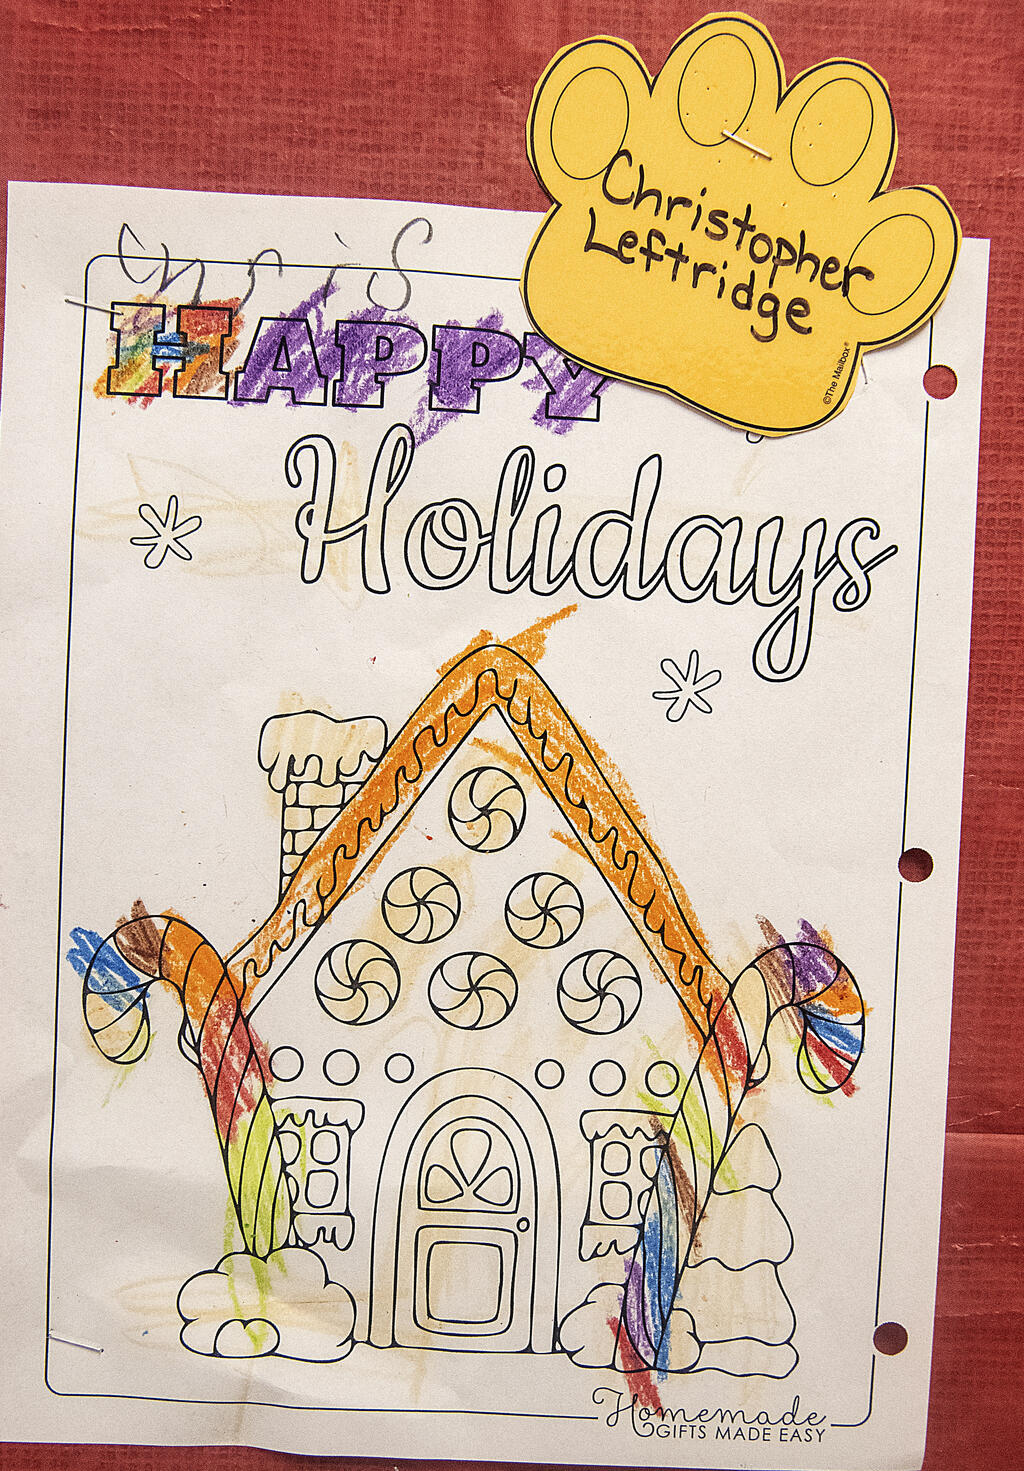 Christopher
Leftridge
©The Mailbox®
chris
HAPPY
Holidays
Homemade
GIFTS MADE EASY